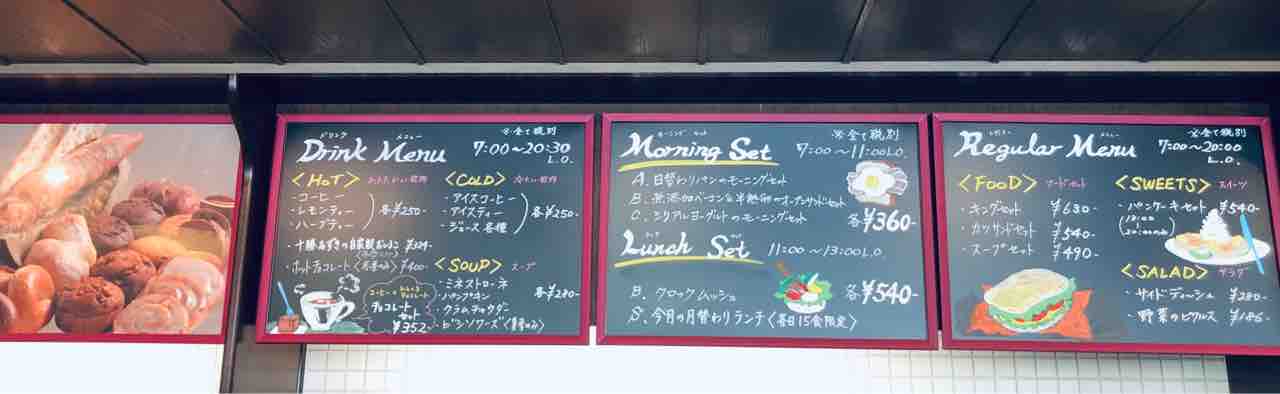 ドリンク メニュー ※全て税別
Drink Menu 7:00〜20:30
L.O.
<HOT> あたたかい飲物
・コーヒー
・レモンティー
・ハーブティー
各¥250-
・十勝あずきの自家製おしるこ
・ホットチョコレート <冬季のみ> ¥400-
コーヒー
チョコレート
セット
¥352-
<COLD> 冷たい飲物
・アイスコーヒー
・アイスティー
・ジュース各種
各¥250-
<SOUP> スープ
・ミネストローネ
・パンプキン
・クラムチャウダー
・ビシソワーズ<夏季のみ>
各¥280-
モーニング セット ※全て税別
Morning Set 7:00〜11:00L.O.
A. 日替わりパンのモーニングセット
B. 無添加ベーコン&半熟卵のオープンサンドセット
C. シリアルヨーグルトのモーニングセット
各¥360-
Lunch Set 11:00〜13:00L.O.
B. クロックムッシュ
S. 今月の月替わりランチ<毎日15食限定>
各¥540-
レギュラー メニュー ※全て税別
Regular Menu 7:00〜20:00
L.O.
<FOOD> フードセット
・キングセット ¥630-
・カツサンドセット ¥540-
・スープセット ¥490-
<SWEETS> スイーツ
・パンケーキセット ¥540-
<SALAD> サラダ
・サイドディッシュ ¥280-
・野菜のピクルス ¥186-